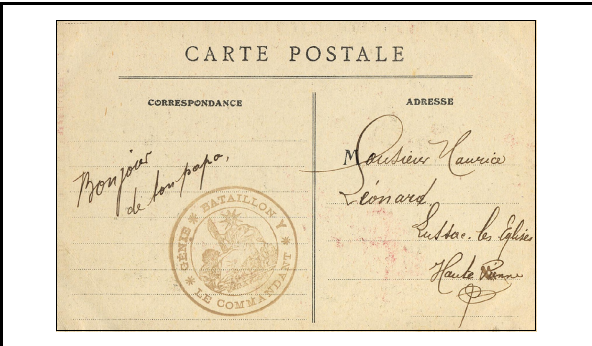 CARTE POSTALE
CORRESPONDANCE
Bonjour
de ton papa.
GÉNIE * BATAILLON Y *
LE COMMANDANT
ADRESSE
Monsieur Maurice
Léonard
Lussac-les Églises
Haute Vienne